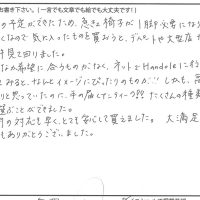 お書き下さい。(一言でも文章でも絵でも大丈夫です!)
の予定ができたため、急きょ椅子が1脚必要になり
くなので気に入ったものを買おうと、デパートや大型店
軒見て回りました。
なか希望に合うものがなく、ネットでHandoleに行
みると、なんとイメージにぴったりのものが!! しかも、
りと思っていたのに、手の届くプライス!? たくさんの種類
選ぶことができました。
の対応も早く、とても安心して買えました。大満足
もありがとうございました。